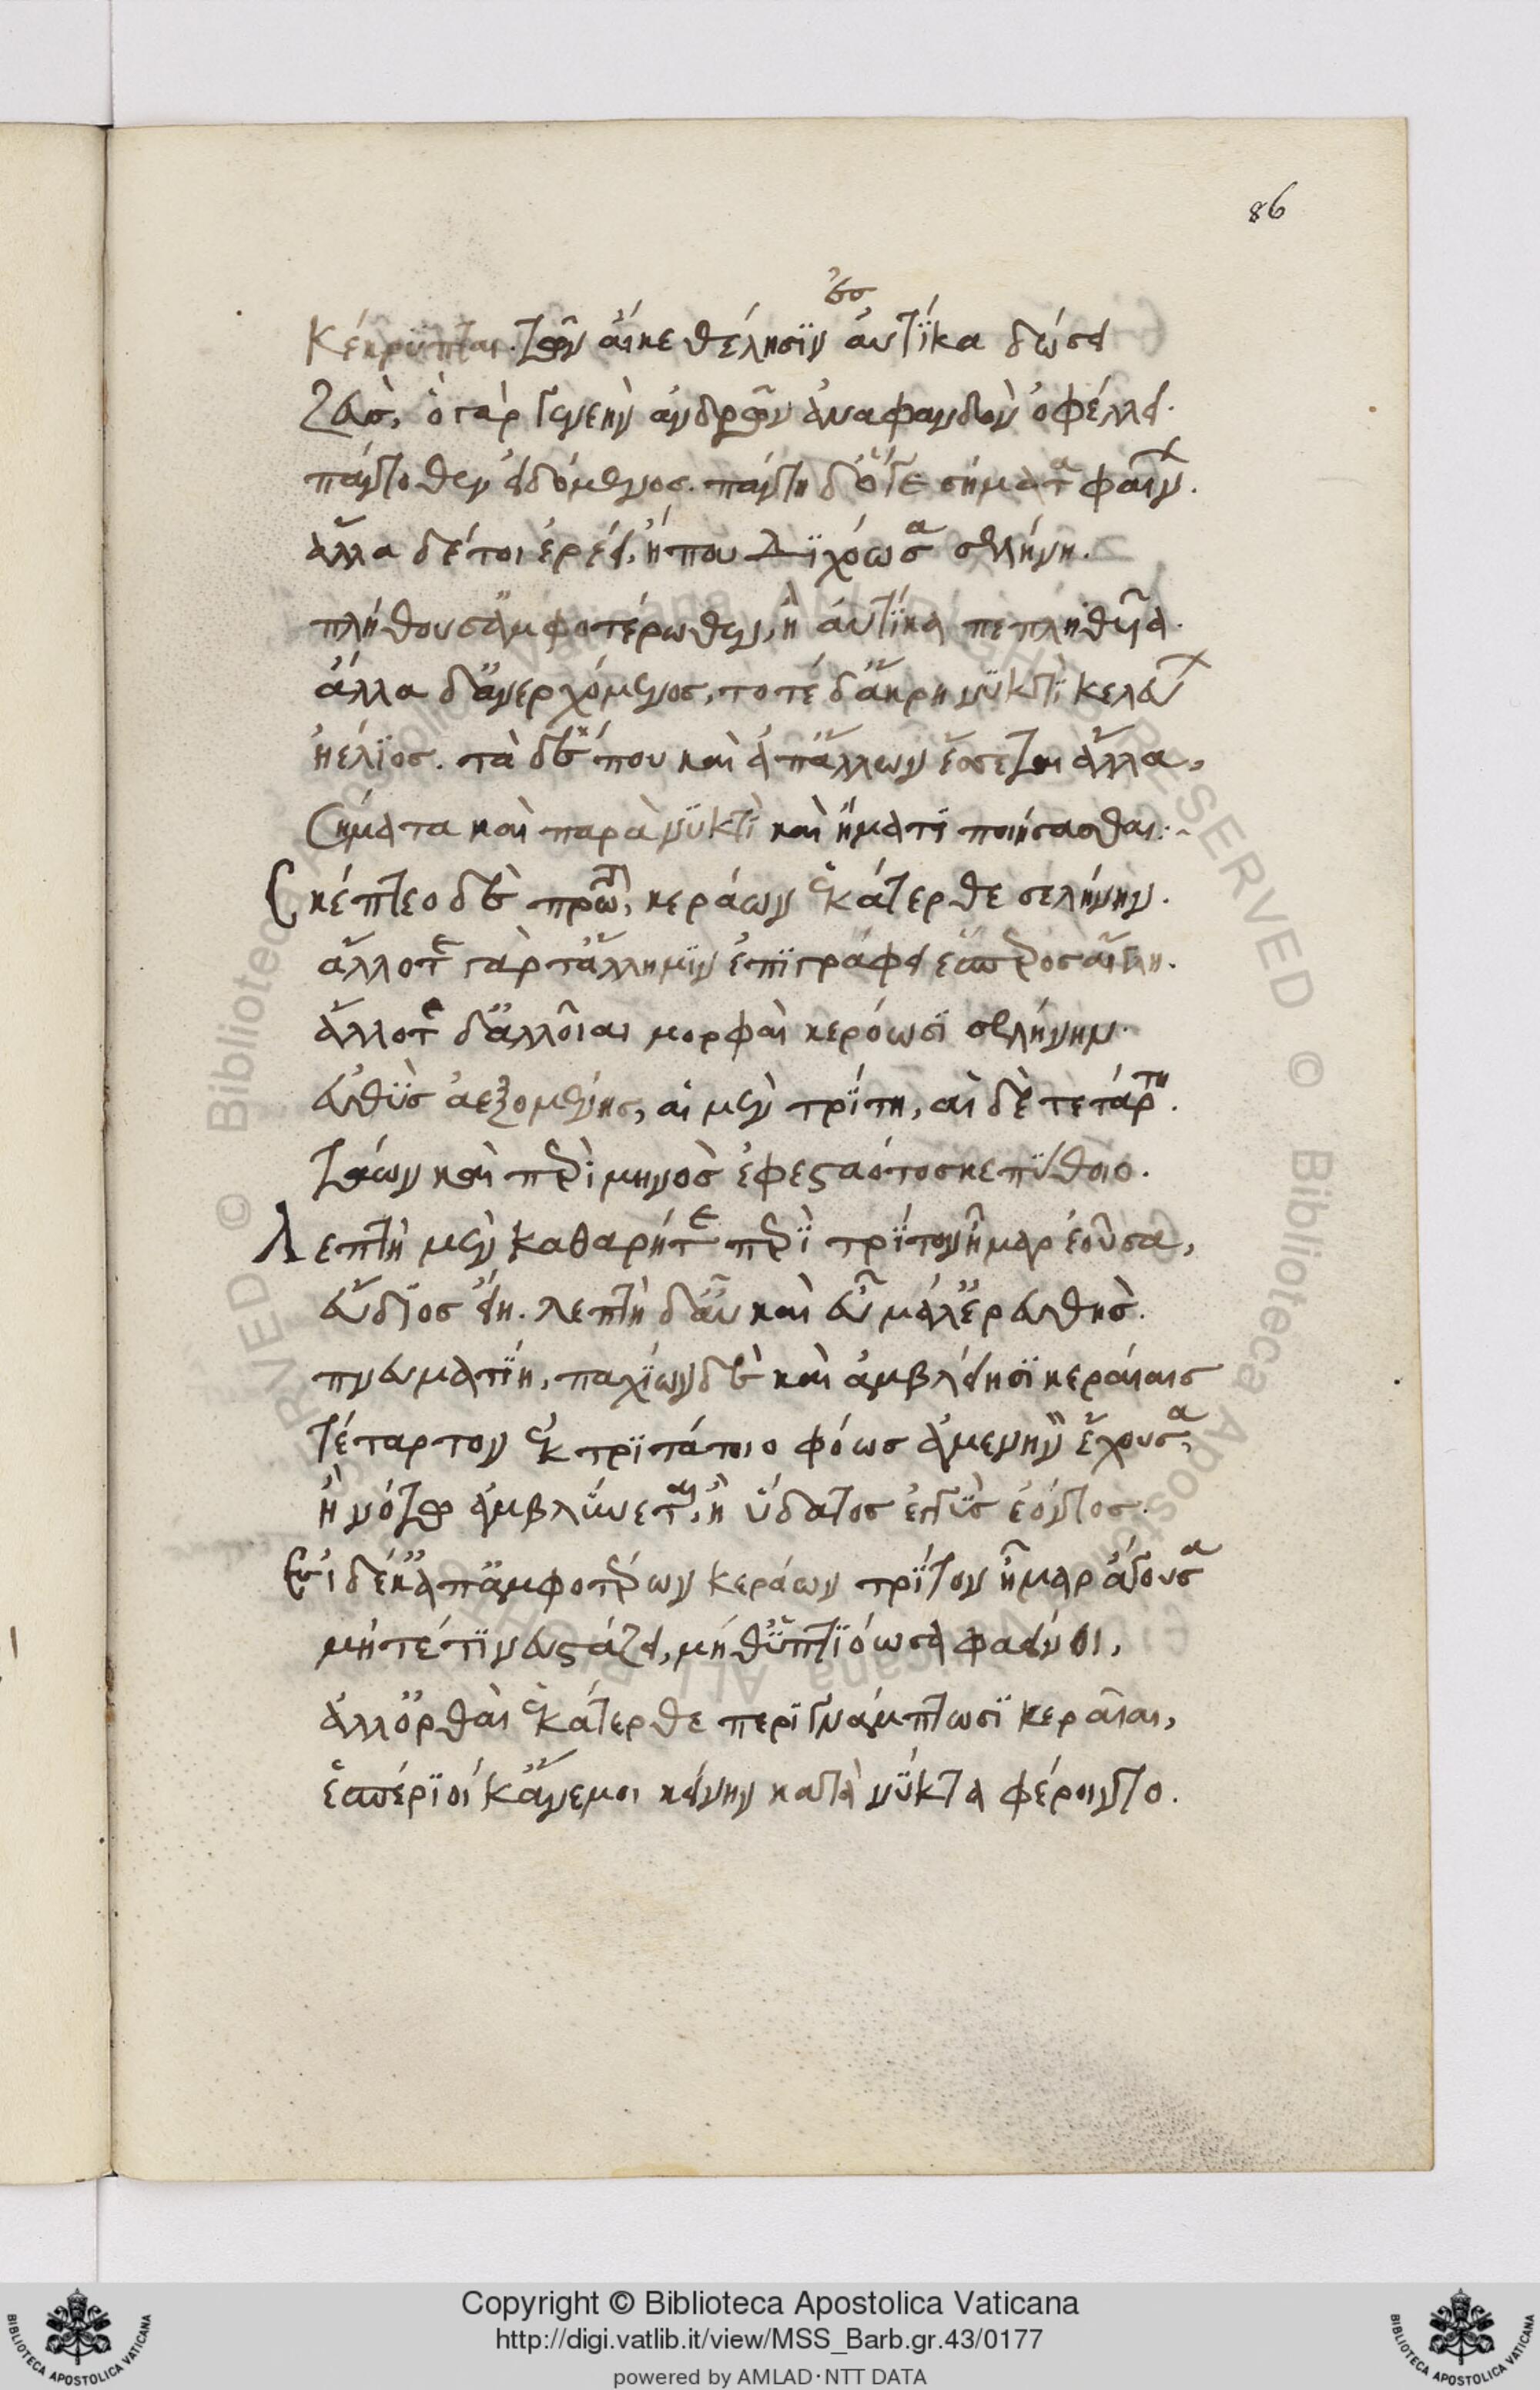 86
ἐσ
Κέκρϋπται. τῶν αἴκε θέλησϊν αὐτΐκα δώσει
Ζεὺσ, ὁ γὰρ γενεὴν ἀνδρῶν ἀναφανδὸν ὀφέλλει.
πάντοθεν εἰδόμενος. πάντη δ' ὅγε σήματα φαίνων.
ἄλλα δέ τοι ἐρέει, ἤπου διχόωσα σελήνη.
πλήθουσ' ἀμφοτέρωθεν, ἢ αὐτΐκα πεπληθυῖα.
ἄλλα δ' ἀνερχόμενος, τοτέ δ' ἄκρη νϋκτῒ κελεύων
ἠέλϊος. τὰ δέ που καὶ ἀπ' ἄλλων ἔσσεται ἄλλα,
Σήματα καὶ παρὰ νϋκτὶ καὶ ἤματϊ ποιήσασθαι:~
Σκέπτεο δὲ πρῶτον κεράων ἑκάτερθε σελήνην.
ἄλλοτε γὰρ τ' ἄλλη μϊν ἐπϊγράφει ἕσπερος αἴγλη.
ἄλλοτε δ' ἀλλοῖαι μορφαὶ κερόωσϊ σελήνην.
εὐθῢσ ἀεξομένης, αἱ μὲν τρΐτη, αἱ δὲ τετάρτη.
τάων καὶ περὶ μηνὸσ ἐφεσταότος κε πΰθοιο.
Λεπτὴ μὲν καθαρήτε περῒ τρΐτον ἦμαρ ἐοῦσα,
εὔδϊος εἴη. λεπτὴ δ' εὖ καὶ εὖ μάλ' ἐρευθὴσ.
πνευματΐη, παχΐων δὲ καὶ ἀμβλείησϊ κεραίαις
τέταρτον ἐκ τρϊτάτοιο φόωσ ἀμενηνὸν ἔχουσα,
ἢ νότῳ ἀμβλύνεται, ἢ ὕδατος ἐγγῢσ ἐόντος.
Εἰ δέ κ' ἀπ' ἀμφοτέρων κεράων τρΐτον ἦμαρ ἄγουσα
μήτέ τϊ νευστάζει, μήθ' ὑπτϊόωσα φαείνοι,
ἀλλ' ὀρθαὶ ἑκάτερθε περϊγνάμπτωσϊ κεραῖαι,
ἑσπέρϊοί κ' ἄνεμοι κείνην κατὰ νΰκτα φέροιντο.
Copyright © Biblioteca Apostolica Vaticana
http://digi.vatlib.it/view/MSS_Barb.gr.43/0177
powered by AMLAD·NTT DATA